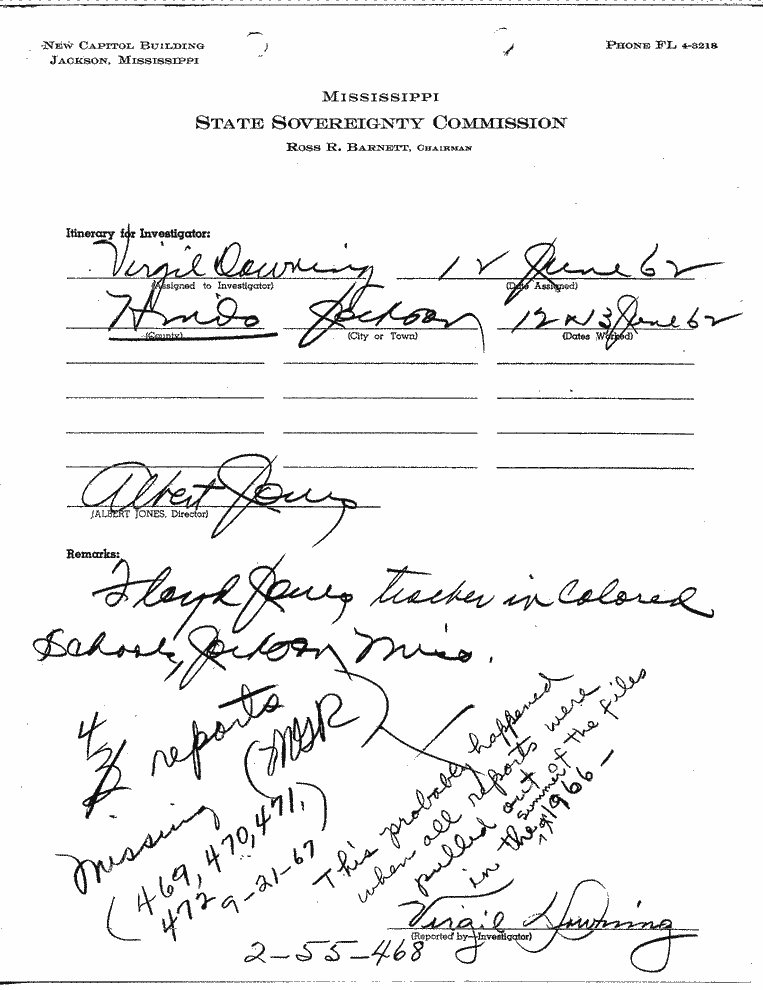 NEW CAPITOL BUILDING
JACKSON, MISSISSIPPI
PHONE FL 4-3218
MISSISSIPPI
STATE SOVEREIGNTY COMMISSION
ROSS R. BARNETT, CHAIRMAN
Itinerary for Investigator:
Virgil Downing 12 June 62
(Assigned to Investigator) (Date Assigned)
Hinds Jackson 12 & 13 June 62
(County) (City or Town) (Dates Worked)
Albert Jones
(ALBERT JONES, Director)
Remarks:
Floyd Jones teacher in Colored
Schools, Jackson Miss.
4
reports
(MSR
Missing
(469, 470, 471,
472)
9-21-67
This probably happened
when all reports were
pulled out of the files
in the summer of 1966 —
Virgil Downing
(Reported by—Investigator)
2-55-468